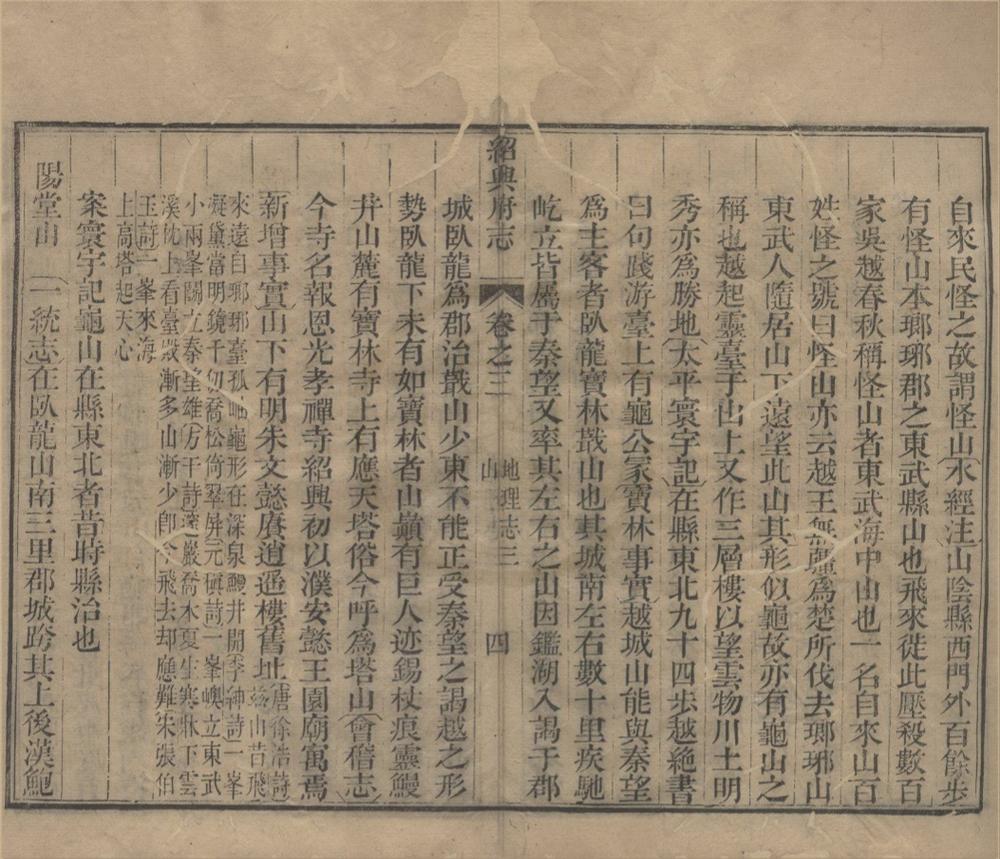 自來民怪之故謂怪山水經注山陰縣西門外百餘步
有怪山本瑯琊郡之東武縣山也飛來徙此壓殺數百
家吳越春秋稱怪山者東武海中山也一名自來山百
姓怪之號曰怪山亦云越王無疆爲楚所伐去瑯琊山
東武人隨居山下遠望此山其形似龜故亦有龜山之
稱也越起靈臺于山上又作三層樓以望雲物川土明
秀亦爲勝地太平寰宇記在縣東北九十四步越絶書
曰句踐游臺上有龜公家寶林事實越城山能與秦望
爲主客者臥龍寶林戢山也其城南左右數十里疾馳
屹立皆屬于秦望又率其左右之山因鑑湖入謁于郡
城臥龍爲郡治戢山少東不能正受秦望之謁越之形
紹興府志 卷之三 地理志三 山 四
勢臥龍下未有如寶林者山巔有巨人迹錫杖痕靈鰻
井山麓有寶林寺上有應天塔俗今呼爲塔山會稽志
今寺名報恩光孝禪寺紹興初以濮安懿王園廟寓焉
新增事實山下有明朱文懿賡逍遥樓舊址唐徐浩詩
兹山昔飛
來遠自瑯琊臺孤岫龜形在深泉鰻井開李紳詩一峯
凝黛當明鏡千仞喬松倚翠屏元稹詩一峯嶼立東武
小兩峯鬭立秦望雄方干詩邃巖喬木夏生寒牀下雲
溪枕上看臺殿漸多山漸少卽今飛去却應難朱張伯
玉詩一峯來海
上高塔起天心
案寰宇記龜山在縣東北者昔時縣治也
陽堂山 一統志在臥龍山南三里郡城跨其上後漢鮑